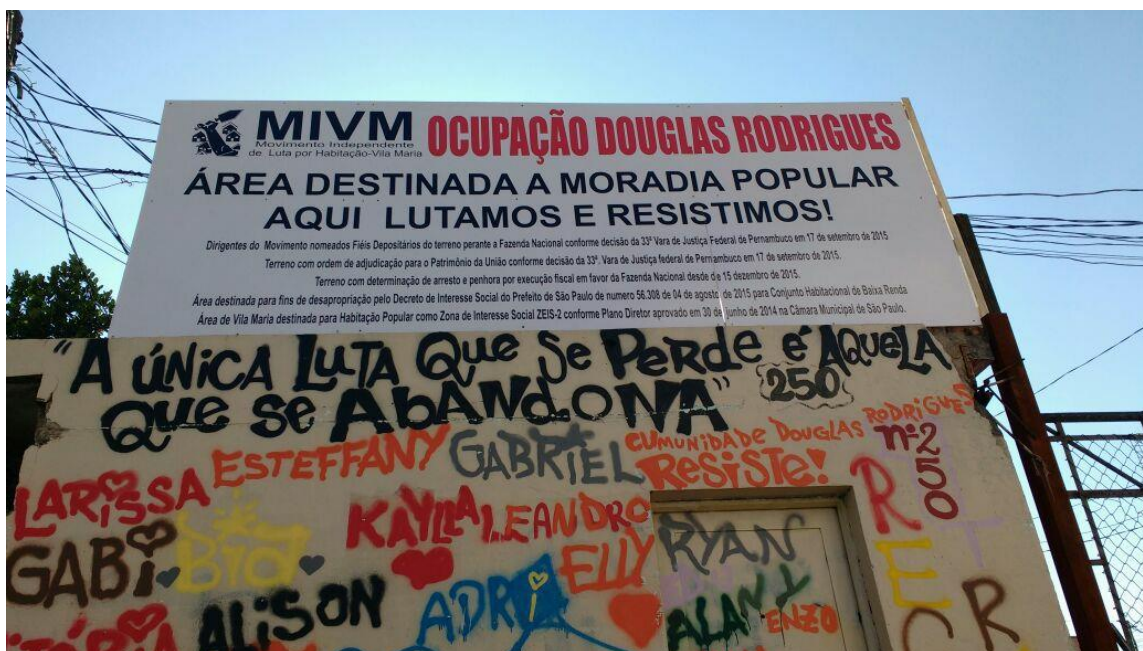 MIVM OCUPAÇÃO DOUGLAS RODRIGUES
Movimento Independente
de Luta por Habitação-Vila Maria
ÁREA DESTINADA A MORADIA POPULAR
AQUI LUTAMOS E RESISTIMOS!
Dirigentes do Movimento nomeados Fiéis Depositários do terreno perante a Fazenda Nacional conforme decisão da 33ª Vara de Justiça Federal de Pernambuco em 17 de setembro de 2015
Terreno com ordem de adjudicação para o Patrimônio da União conforme decisão da 33ª. Vara de Justiça federal de Pernambuco em 17 de setembro de 2015.
Terreno com determinação de arresto e penhora por execução fiscal em favor da Fazenda Nacional desde de 15 dezembro de 2015.
Área destinada para fins de desapropriação pelo Decreto de Interesse Social do Prefeito de São Paulo de numero 56.308 de 04 de agosto de 2015 para Conjunto Habitacional de Baixa Renda
Área de Vila Maria destinada para Habitação Popular como Zona de Interesse Social ZEIS-2 conforme Plano Diretor aprovado em 30 de junho de 2014 na Câmara Municipal de São Paulo.
"A ÚNICA LUTA QUE SE PERDE É AQUELA
QUE SE ABANDONA" 250
CUMUNIDADE DOUGLAS RODRIGUES
RESISTE! nº250
ESTEFFANY GABRIEL
LARISSA KAYLLA LEANDRO
GABI BIA ELLY RYAN
ALISON ADRI ALANY ENZO